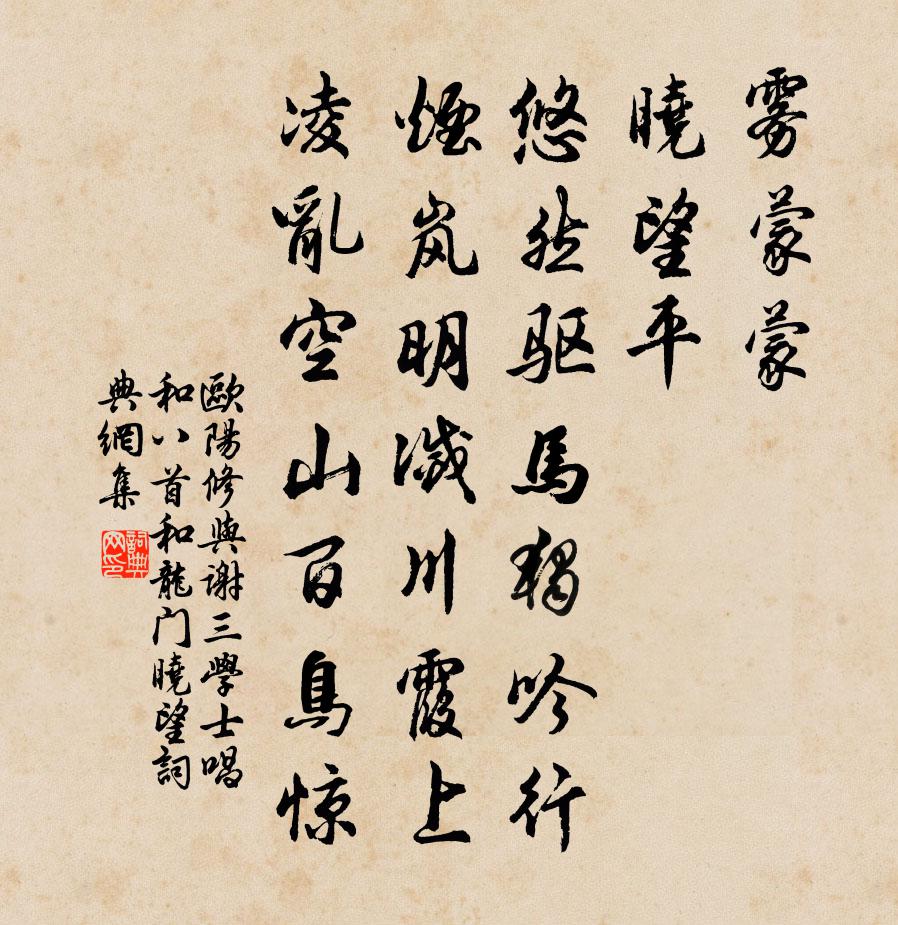 雾蒙蒙
曉望平
悠然驱馬獨吟行
煙岚明滅川霞上
凌亂空山百鳥惊
歐陽修與謝三學士唱
和八首和龍门曉望詞
典網集
詞典网印